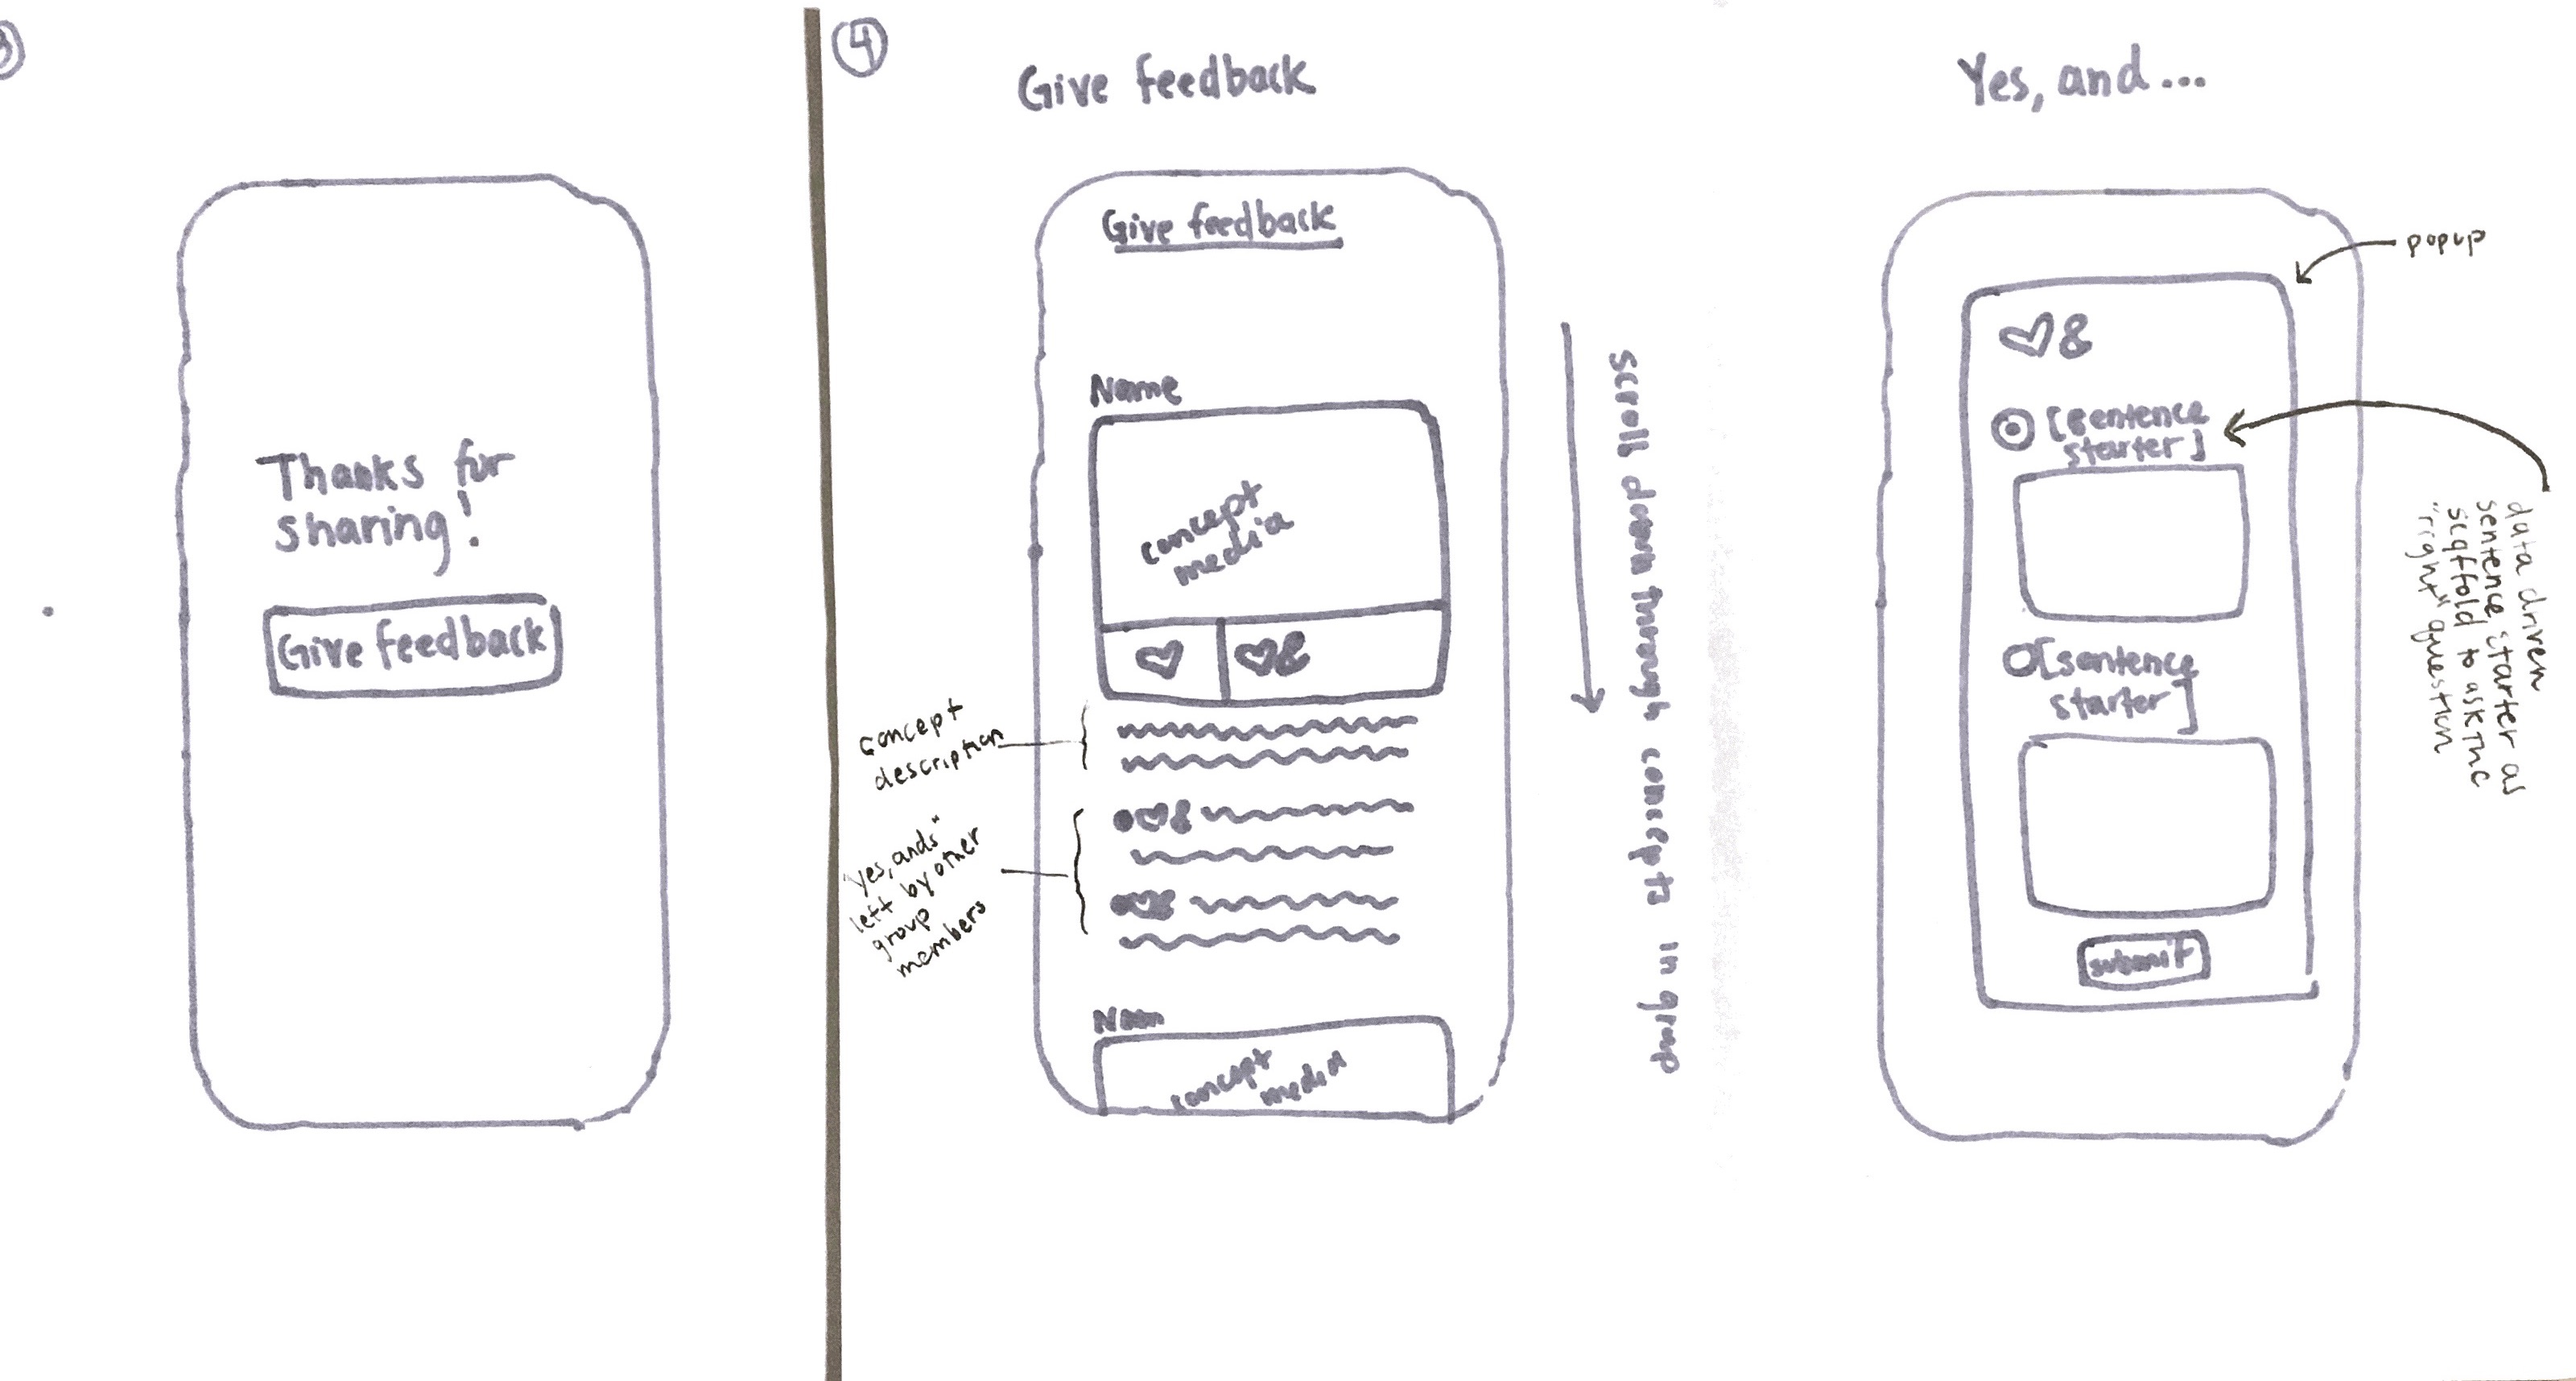 Thanks for
sharing!
Give feedback
4
Give feedback
Give feedback
Name
concept
media
concept
description
"yes, ands"
left by other
group
members
concept
media
scroll down through concepts in group
Yes, and...
popup
&
[sentence
starter]
[sentence
starter]
submit
data driven
sentence starter as
scaffold to ask the
"right" question